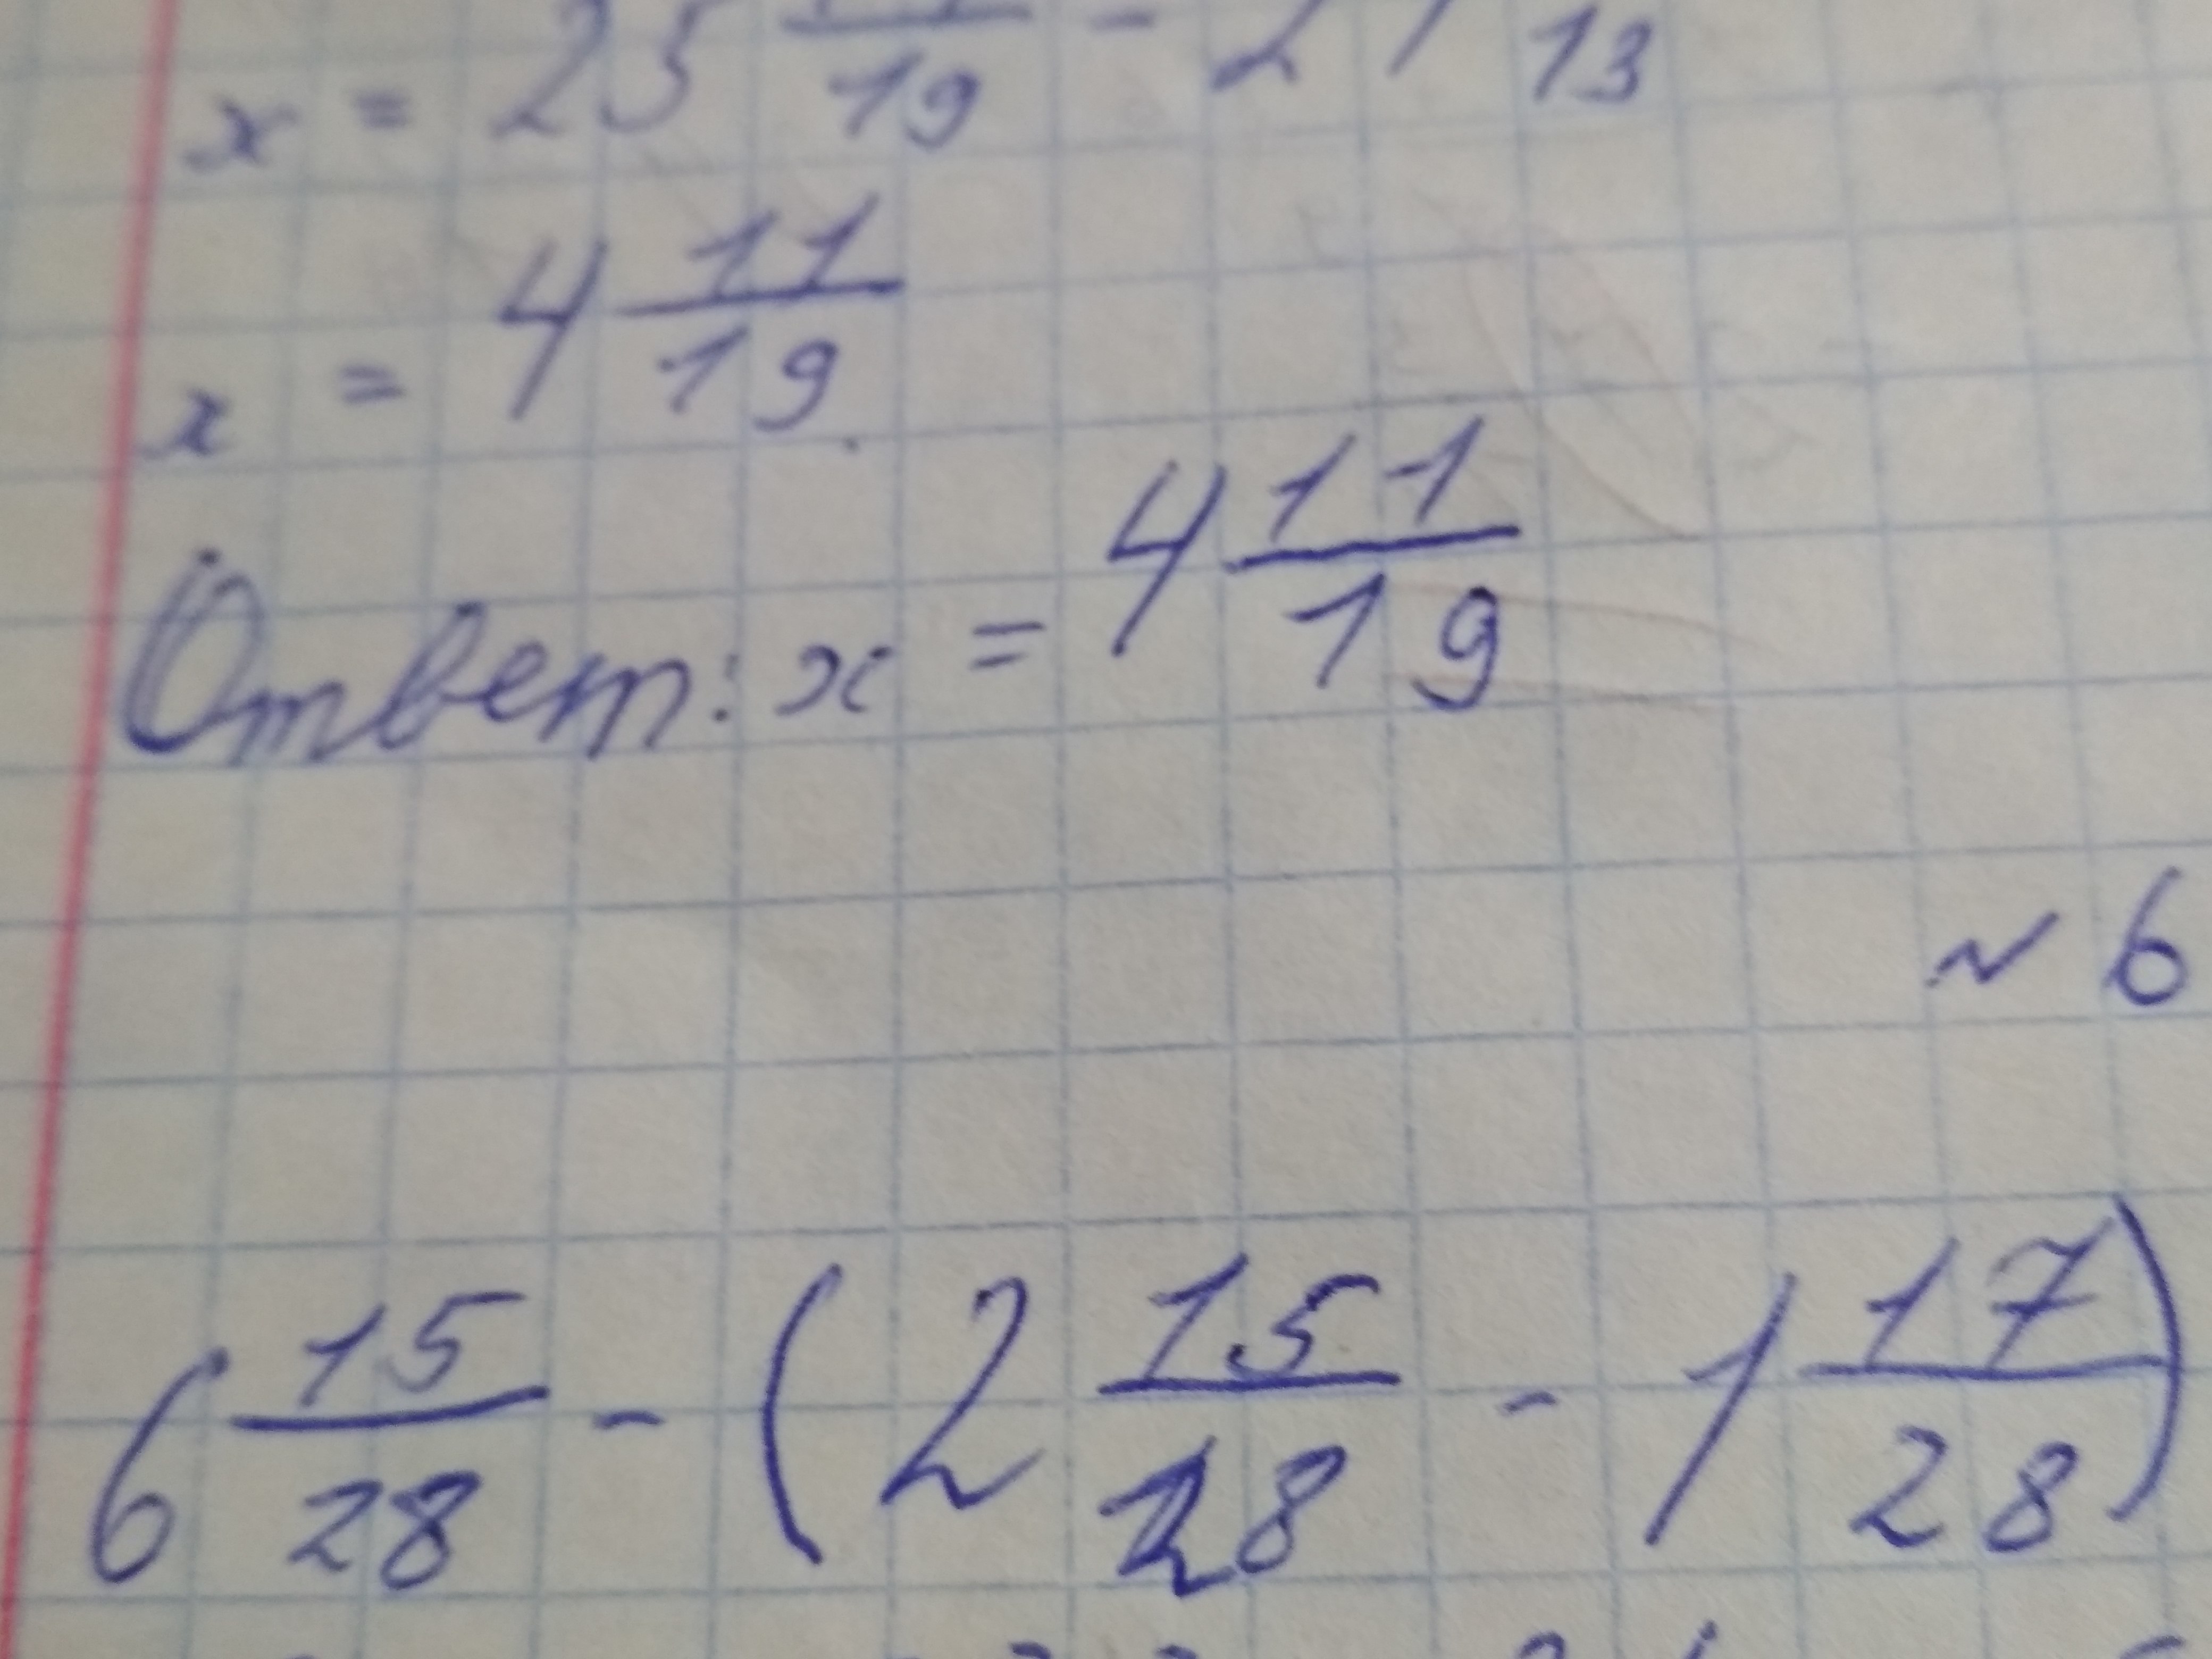 x = 25 /19 - 21 /13
x = 4 11/19.
Ответ: x = 4 11/19
№ 6
6 15/28 - (2 15/28 - 1 17/28)